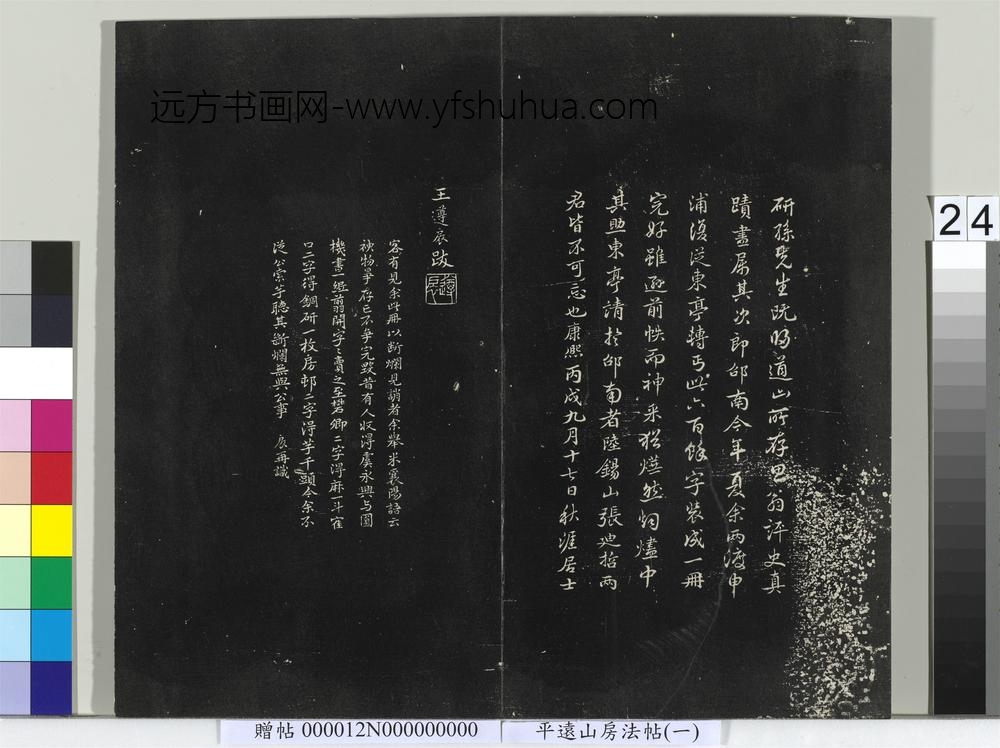 远方书画网-www.yfshuhua.com
研孫先生既得道山所存思翁評史真
蹟畫屏其次即邰南今年夏余兩渡申
浦復從東亭轉丐此六百餘字裝成一冊
完好雖遜前帙而神采猶燕然炯燼中
其與東亭請於邰南者陸錫山張廸哲兩
君皆不可忘也康熙丙戌九月十七日秋涯居士
王遵扆跋
客有見余此冊以斷爛見誚者余舉米襄陽語云
神物畢存已不爭完毀昔有人收得虞永興与圓
機書一紙剪開字字賣之至礬卿二字得麻一斗雀
口二字得銅研一枚房邨二字得芋千頭今余不
從公索芋聽其斷爛無與公事 扆再識
24
贈帖 000012N000000000
平遠山房法帖(一)